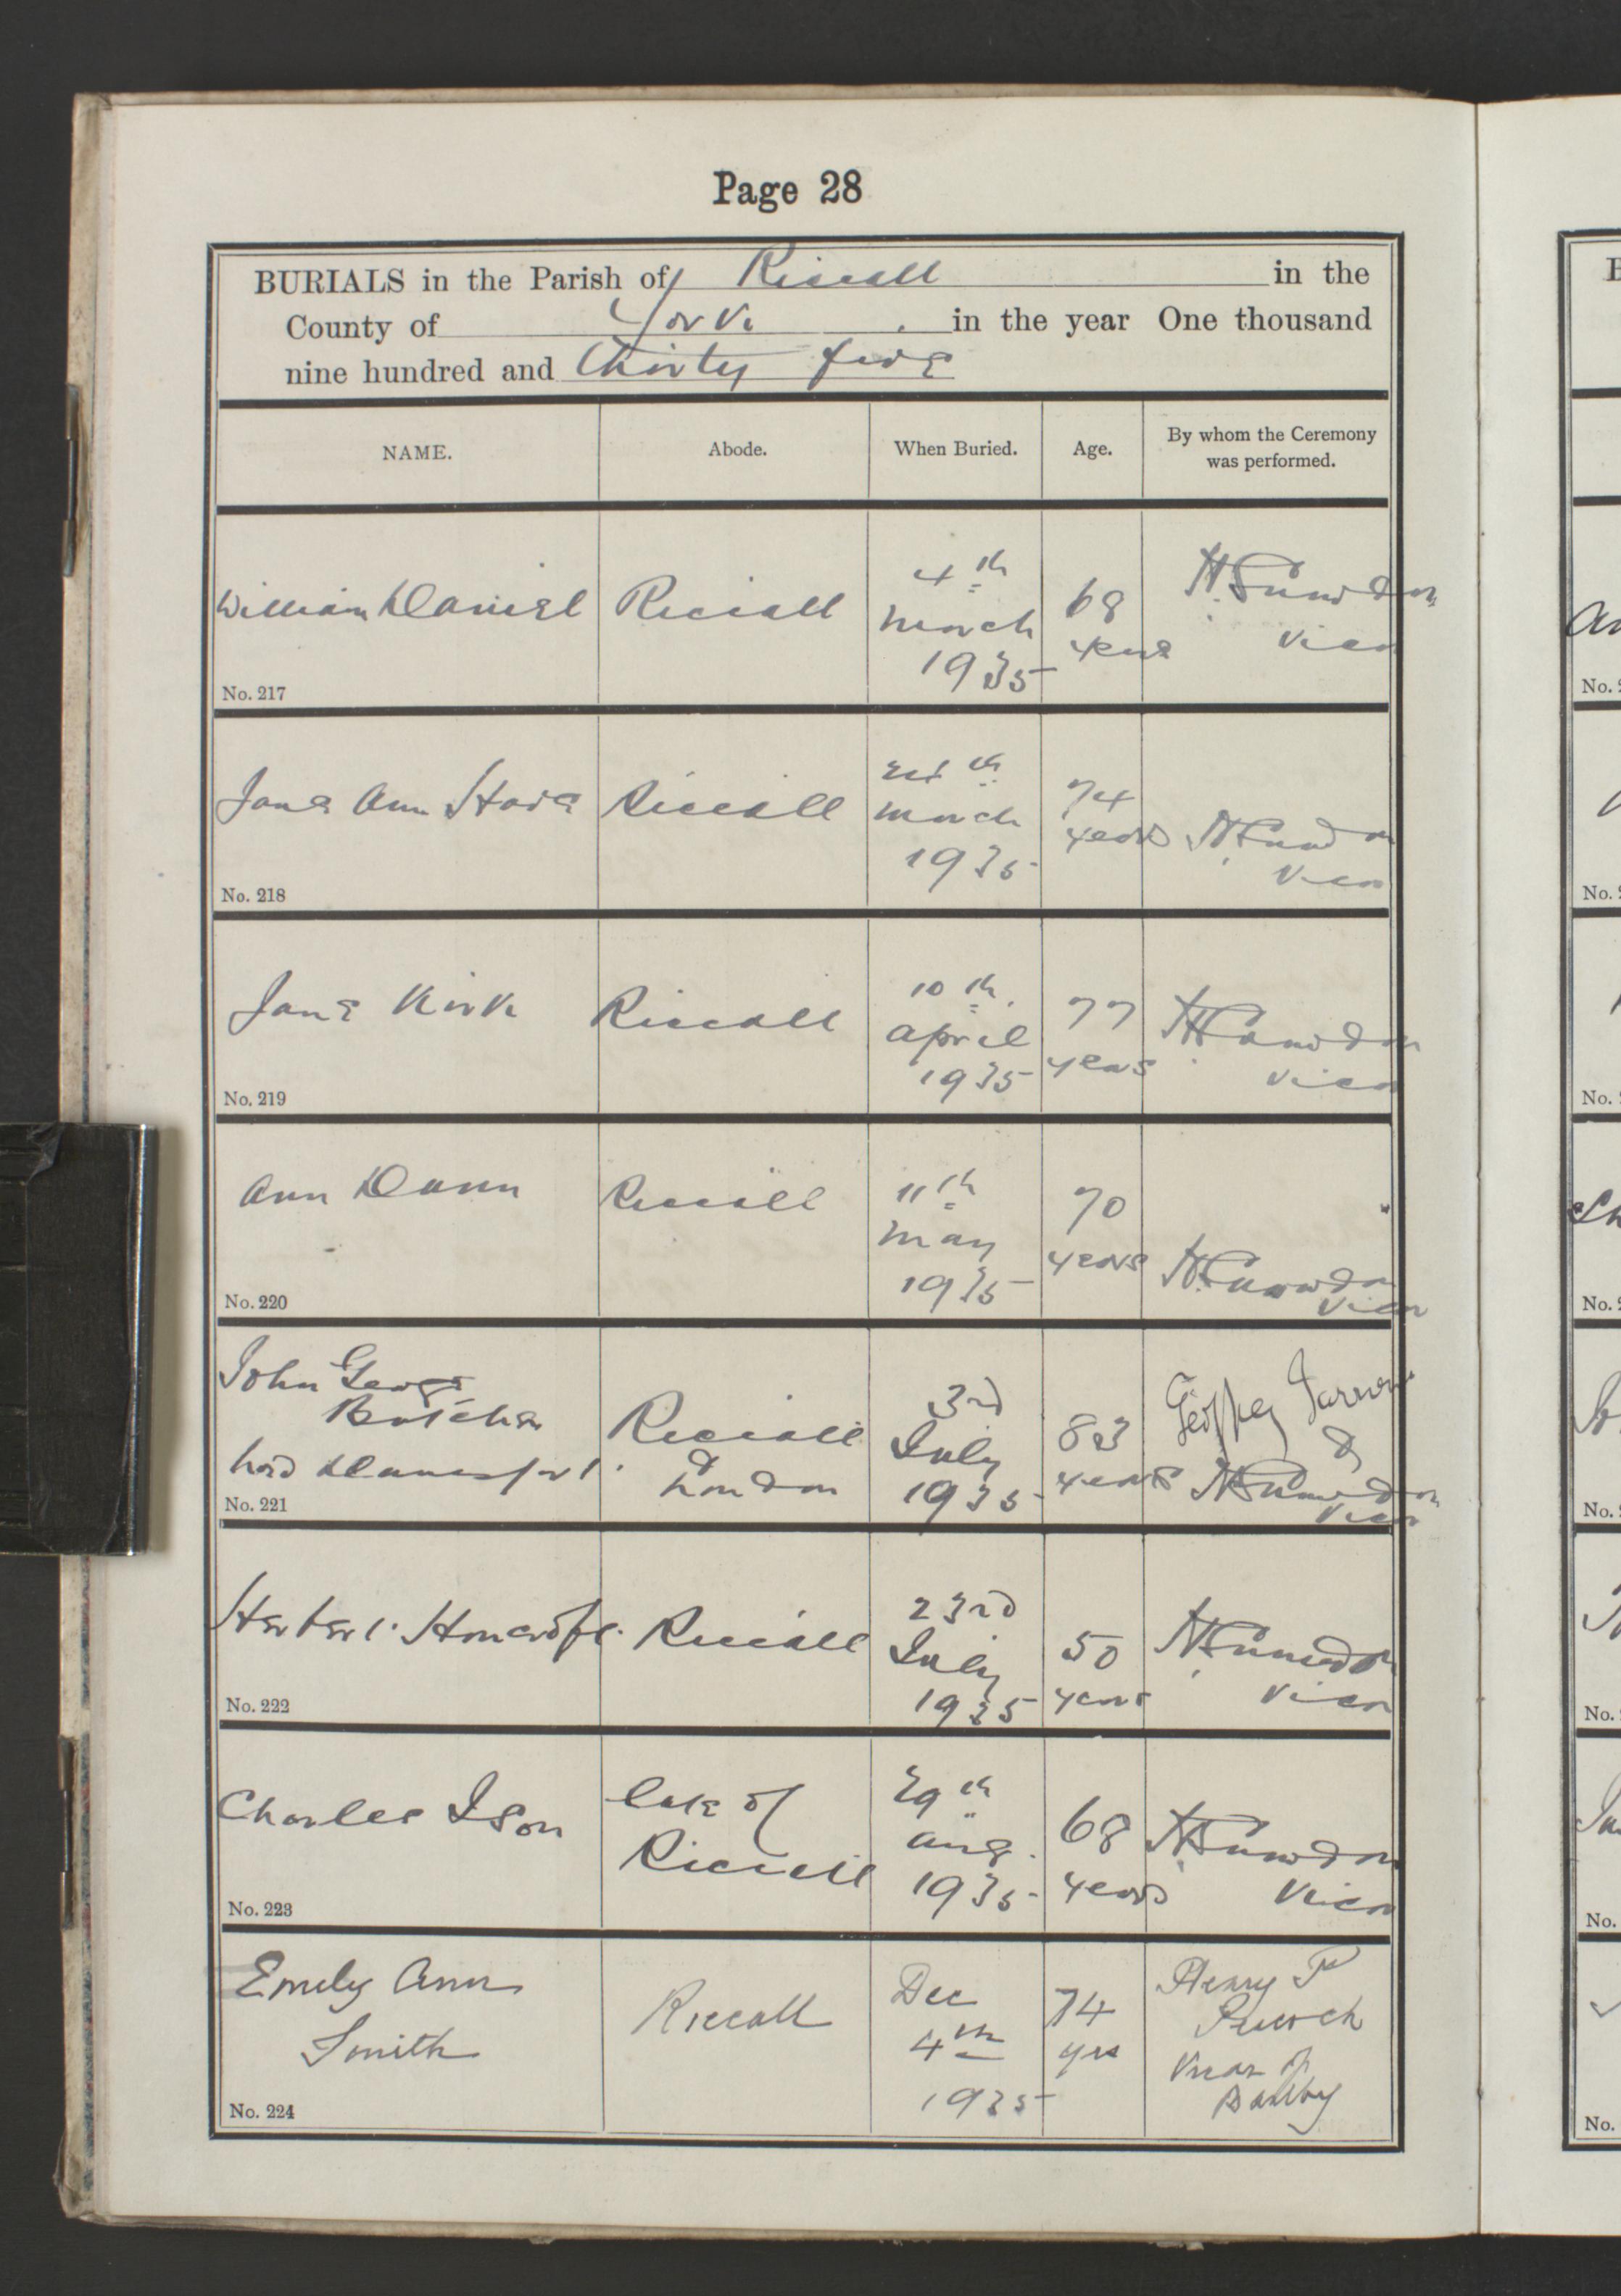 Page 28
BURIALS in the Parish of Riccall in the
County of York in the year One thousand
nine hundred and Thirty five
NAME. Abode. When Buried. Age. By whom the Ceremony was performed.
William Daniel Riccall 4th March 1935 68 years Vicar
No. 217
Jane Ann Riccall March 1935 74 years Vicar
No. 218
Jane Kirk Riccall 10th April 1935 77 years Vicar
No. 219
Ann Dunn Riccall 11th May 1935 70 years Vicar
No. 220
John George
Butcher
Lord Danesfort Riccall & London 3rd July 1935 83 years Geoffrey & Vicar
No. 221
Herbert Riccall 23rd July 1935 50 years Vicar
No. 222
Charles Ison late of Riccall 29th Aug. 1935 68 years Vicar
No. 223
Emily Ann
Smith Riccall Dec 4th 1935 74 yrs Henry P Vicar of Barlby
No. 224
No.
No.
No.
No.
No.
No.
No.
No.